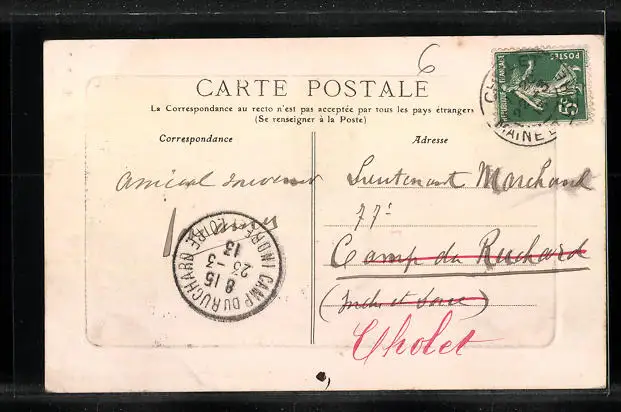 6
CARTE POSTALE
La Correspondance au recto n'est pas acceptée par tous les pays étrangers
(Se renseigner à la Poste)
Correspondance
Adresse
amical souvenir
Lieutenant Marchand
77e
Camp du Ruchard
(Indre et Loire)
Cholet
CAMP DU RUCHARD
8 15
23 - 3
13
LOIRE
POSTES